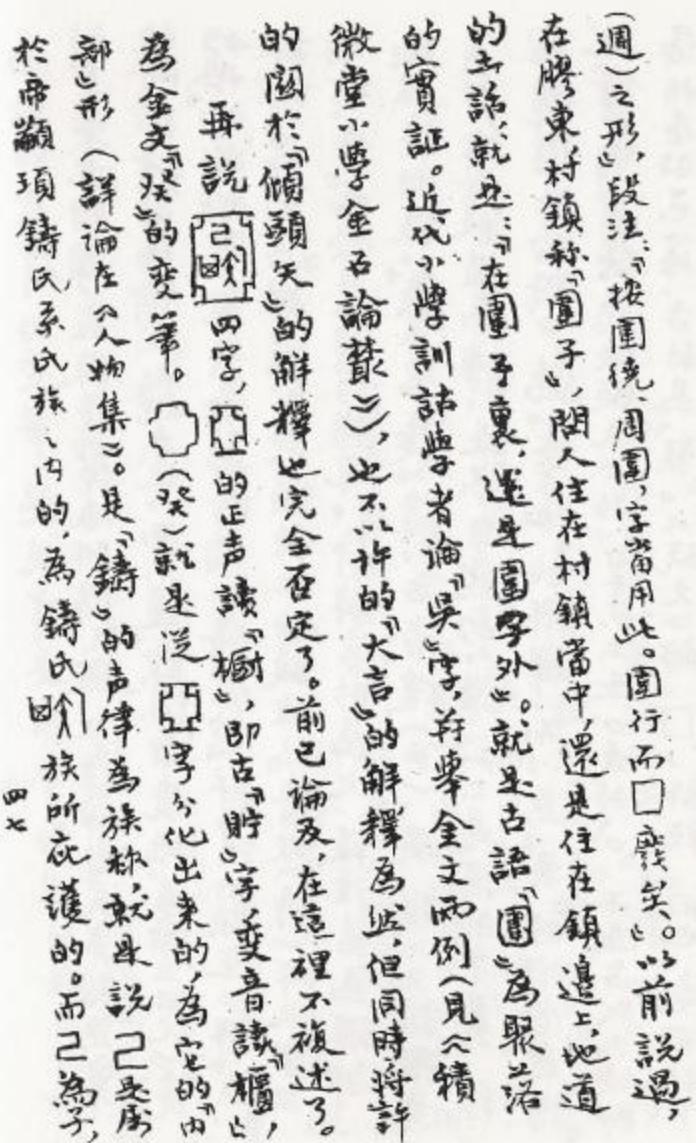 (週)之形」段注:「按圍繞、周圍,字當用此。圍行而囗廢矣。」以前說過,
在膠東村鎮称「圍子」,問人住在村鎮當中,還是住在鎮邊上,地道
的土話,就是:「在圍子裏,還是圍子外」。就是古語「圍」為聚土落
的實証。近代小學訓詁學者論「吳」字,并舉金文兩例(見《積
微堂小學金石論叢》),也不以許的「大言」的解釋為然,但同時將許
的關於「傾頭矢」的解釋也完全否定了。前已論及,在這裡不複述了。
再說 四字, 的正声讀「櫥」,即古「貯」字,变音讀「櫃」,
為金文「癸」的变筆。 (癸)就是從 字分化出來的,為它的「内
部」形(詳論在《人物集》)。是「鑄」的声律為族称,就是說己是屬
於帝顓頊鑄氏系氏族、内的,為鑄氏 族所庇護的。而己為子,
四七